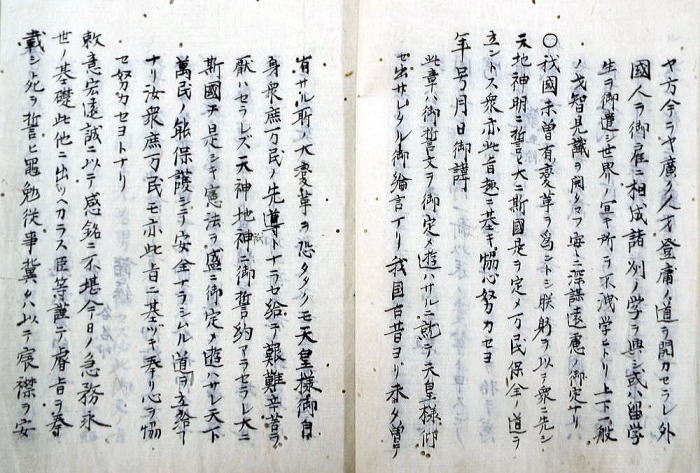 ヤ方今ラヤ廣ク人才登庸ノ道ヲ開カセラレ外
國人ヲ御雇ニ相成諸列ノ学ヲ興シ或ハ留学
生ヲ御遣シ世界ノ宜キ所ヲ不洩学ヒトリ上下般
ノ才智見識ヲ開タマフ安々ニ深謀遠慮ノ御定ナリ
〇我國未曽有変革ヲ為ントシ朕躬ヲ以テ衆ニ先シ
天地神明ニ誓ヒ大ニ斯國是ヲ定メ万民保全ノ道ヲ
立ントス衆亦此旨趣ニ基キ協心努力セヨ
年号月日御諱
此章ハ御誓文ヲ御定メ遊ハサルニ就テ天皇様
セ出サレタル御綸言ナリ我国古昔ヨリ未タ曽テ
有サル所ノ大変革ヲ恐多クモ天皇様御自
身衆庶万民ノ先導トナラセ給テ艱難辛苦ヲ
厭ハセラレズ天神地神ニ御誓約アラセラレ大ニ
斯國ヲ是シキ憲法ヲ盛ニ御定メ遊ハサレ天下
萬民ノ能保護シテ安全ナラシムル道ヲ立給フ
ナリ汝衆庶万民モ亦此旨ニ基ツキ奉リ心ヲ協
セ努力セヨトナリ
敕意宏遠誠ニ以テ感銘ニ不堪今日ノ急務永
世ノ基礎此他ニ出ツヘカラス臣等謹ニ睿旨ヲ奉
載シ死ヲ誓ヒ黽勉従事冀クハ以テ宸襟ヲ安